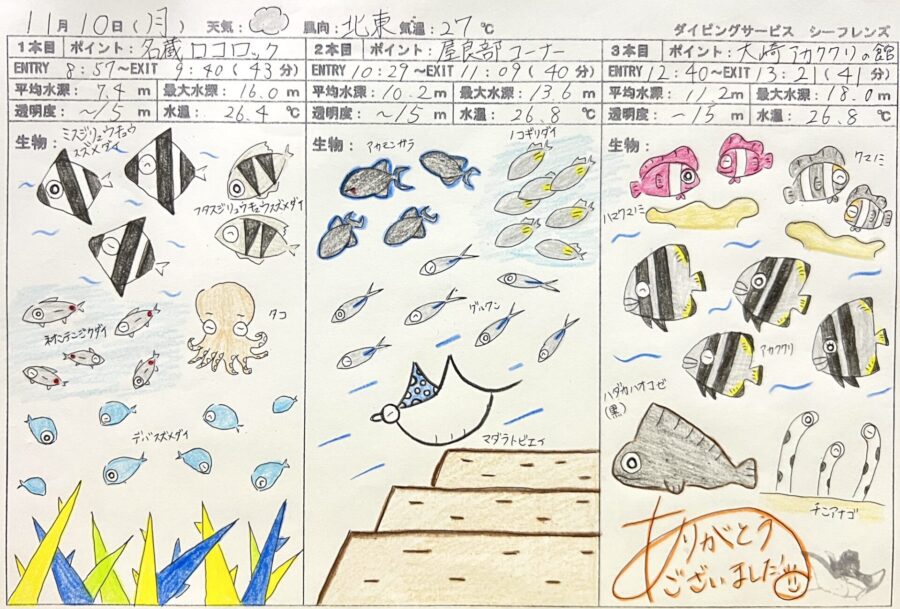 11月10日(月) 天気: 風向:北東 気温:27℃ ダイビングサービス シーフレンズ
1本目 ポイント:名蔵ロコロック
ENTRY 8:57～EXIT 9:40(43分)
平均水深: 7.4m 最大水深: 16.0m
透明度: ～15m 水温: 26.4℃
生物:
ミスジリュウキュウ
スズメダイ
フタスジリュウキュウスズメダイ
タコ
デバスズメダイ
2本目 ポイント:屋良部コーナー
ENTRY 10:29～EXIT 11:09(40分)
平均水深: 10.2m 最大水深: 13.6m
透明度: ～15m 水温: 26.8℃
生物:
アカモンガラ
ノコギリダイ
グルクン
マダラトビエイ
3本目 ポイント:大崎アカククリの館
ENTRY 12:40～EXIT 13:21(41分)
平均水深: 11.2m 最大水深: 18.0m
透明度: ～15m 水温: 26.8℃
生物:
クマノミ
ハマクマノミ
アカククリ
ハダカハオコゼ
(黒)
チンアナゴ
ありがとう
ございました